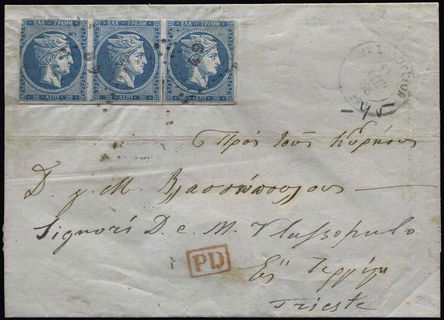 ΕΛΛ. ΓΡΑΜΜ. ΕΛΛ. ΓΡΑΜΜ. ΕΛΛ. ΓΡΑΜΜ.
20 ΛΕΠΤ. 20 20 ΛΕΠΤ. 20 20 ΛΕΠΤ. 20
Πρὸς τοὺς Κυρίους
Δ. & Μ. Βλασσόπουλους
Signori D. e M. Vlassopulo
PD
Εἰς Τεργέστη
Trieste